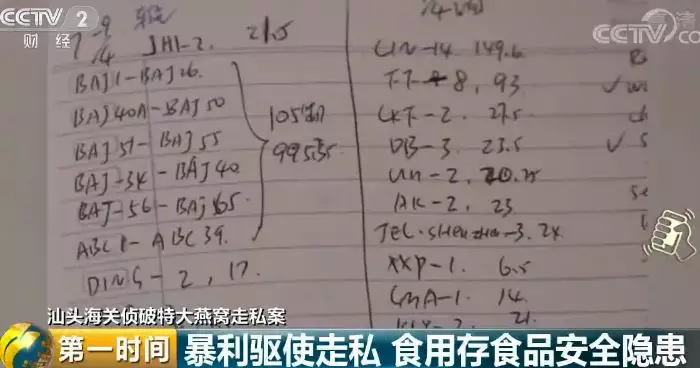 CCTV 2
财经
CCTV
JHI-2. 21.5
BAJ1-BAJ26.
BAJ40A-BAJ50
BAJ51-BAJ55
BAJ-34-BAJ40
BAJ-56-BAJ65.
ABC1-ABC39.
DING-2, 17.
LIN-14. 149.6
TT-8, 93
LKT-2. 27.5
DB-3. 23.5
AK-2, 23
JEL.shenzhen-3.24
XXP-1. 6.5
GMA-1. 14.
21.
汕头海关侦破特大燕窝走私案
第一时间
暴利驱使走私 食用存食品安全隐患